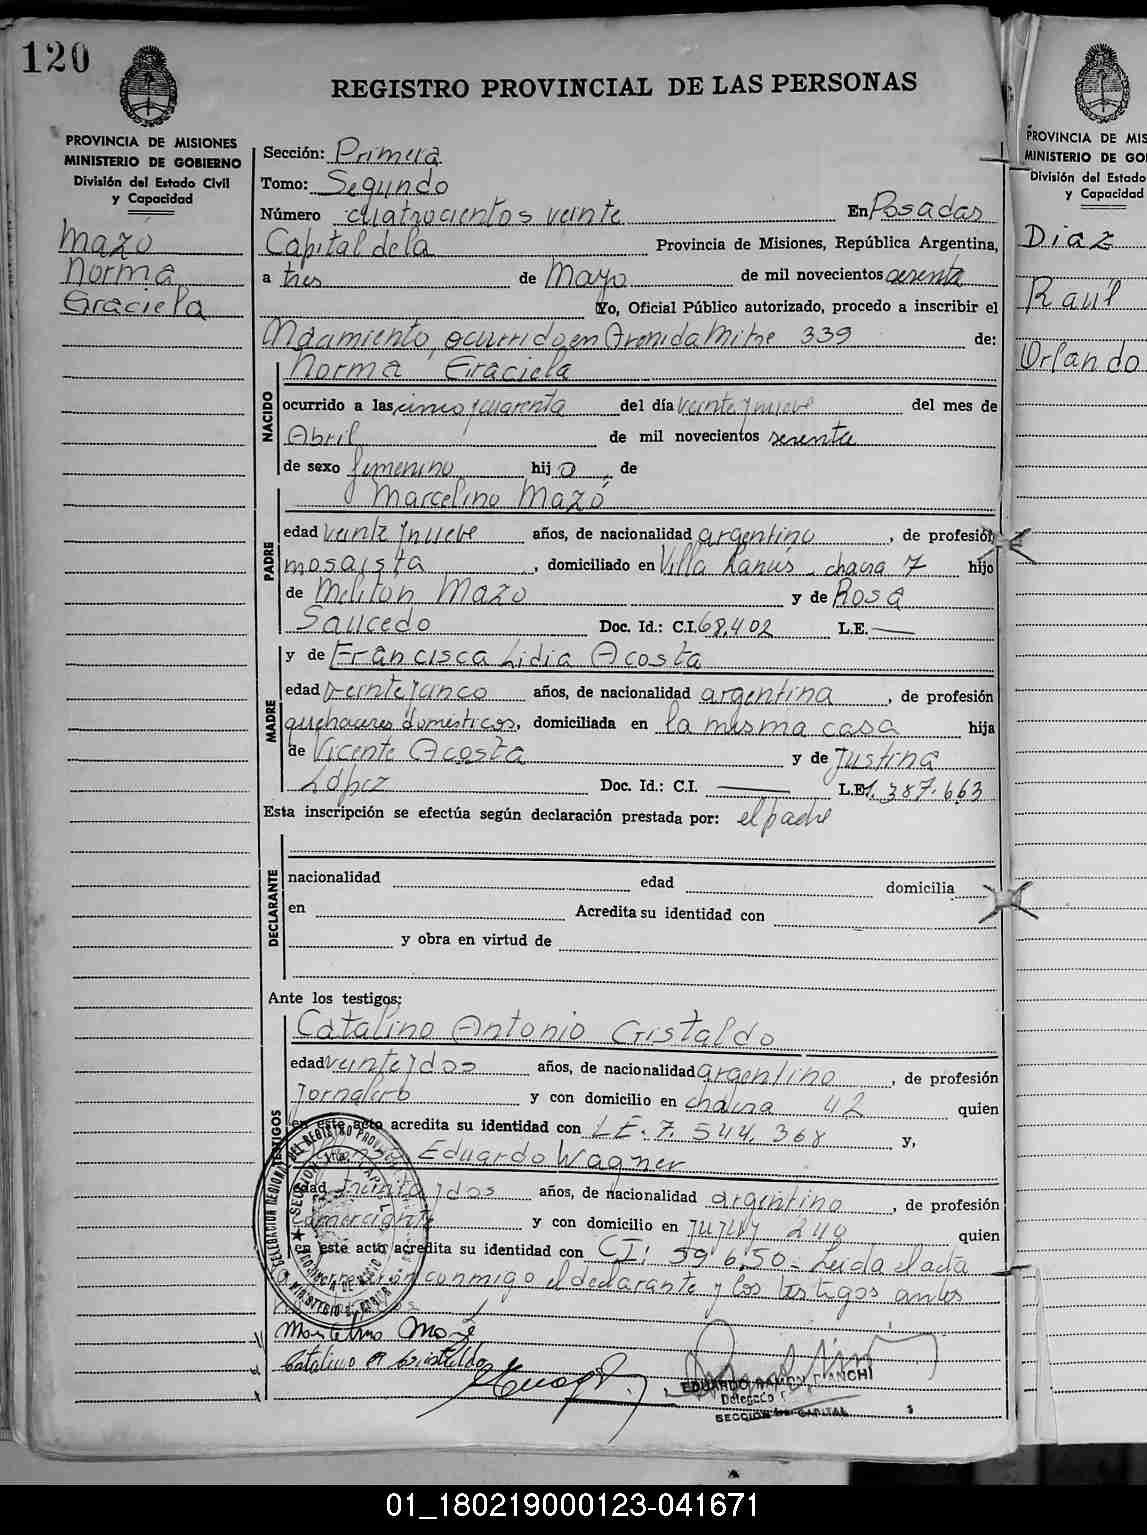 120
REGISTRO PROVINCIAL DE LAS PERSONAS
PROVINCIA DE MISIONES
MINISTERIO DE GOBIERNO
División del Estado Civil
y Capacidad
Mazó
Norma
Graciela
Sección: Primera
Tomo: Segundo
Número cuatrocientos veinte En Posadas
Capital de la Provincia de Misiones, República Argentina,
a tres de Mayo de mil novecientos sesenta
Yo, Oficial Público autorizado, procedo a inscribir el
Nacimiento, ocurrido en Avenida Mitre 339 de:
NACIDO
Norma Graciela
ocurrido a las cinco y cuarenta del día veinte y nueve del mes de
Abril de mil novecientos sesenta
de sexo femenino hij o de
PADRE
Marcelino Mazó
edad veinte y nueve años, de nacionalidad argentino, de profesión
mosaista, domiciliado en Villa Lanús - chacra 7 hijo
de Meliton Mazo y de Rosa
Saucedo Doc. Id.: C.I. 68.402 L.E. —
MADRE
y de Francisca Lidia Acosta
edad veinte y cinco años, de nacionalidad argentina, de profesión
quehaceres domésticos, domiciliada en la misma casa hija
de Vicente Acosta y de Justina
López Doc. Id.: C.I. — L.E. 1.387.663
Esta inscripción se efectúa según declaración prestada por: el padre
DECLARANTE
nacionalidad edad domicilia
en Acredita su identidad con
y obra en virtud de
Ante los testigos:
TESTIGOS
Catalino Antonio Cristaldo
edad veinte y dos años, de nacionalidad argentino, de profesión
Jornalero y con domicilio en chacra 42 quien
en este acto acredita su identidad con L.E. 7.544.368 y,
Eduardo Wagner
edad treinta y dos años, de nacionalidad argentino, de profesión
comerciante y con domicilio en Jujuy 240 quien
en este acto acredita su identidad con C.I: 59650 - Leida el acta
conmigo el declarante y los testigos antes
Marcelino Mazó
Catalino A Cristaldo
EDUARDO RAMON BIANCHI
Delegado
SECCION CAPITAL
PROVINCIA DE MIS
MINISTERIO DE GO
División del Estado
y Capacidad
Diaz
Raúl
Orlando
01_180219000123-041671